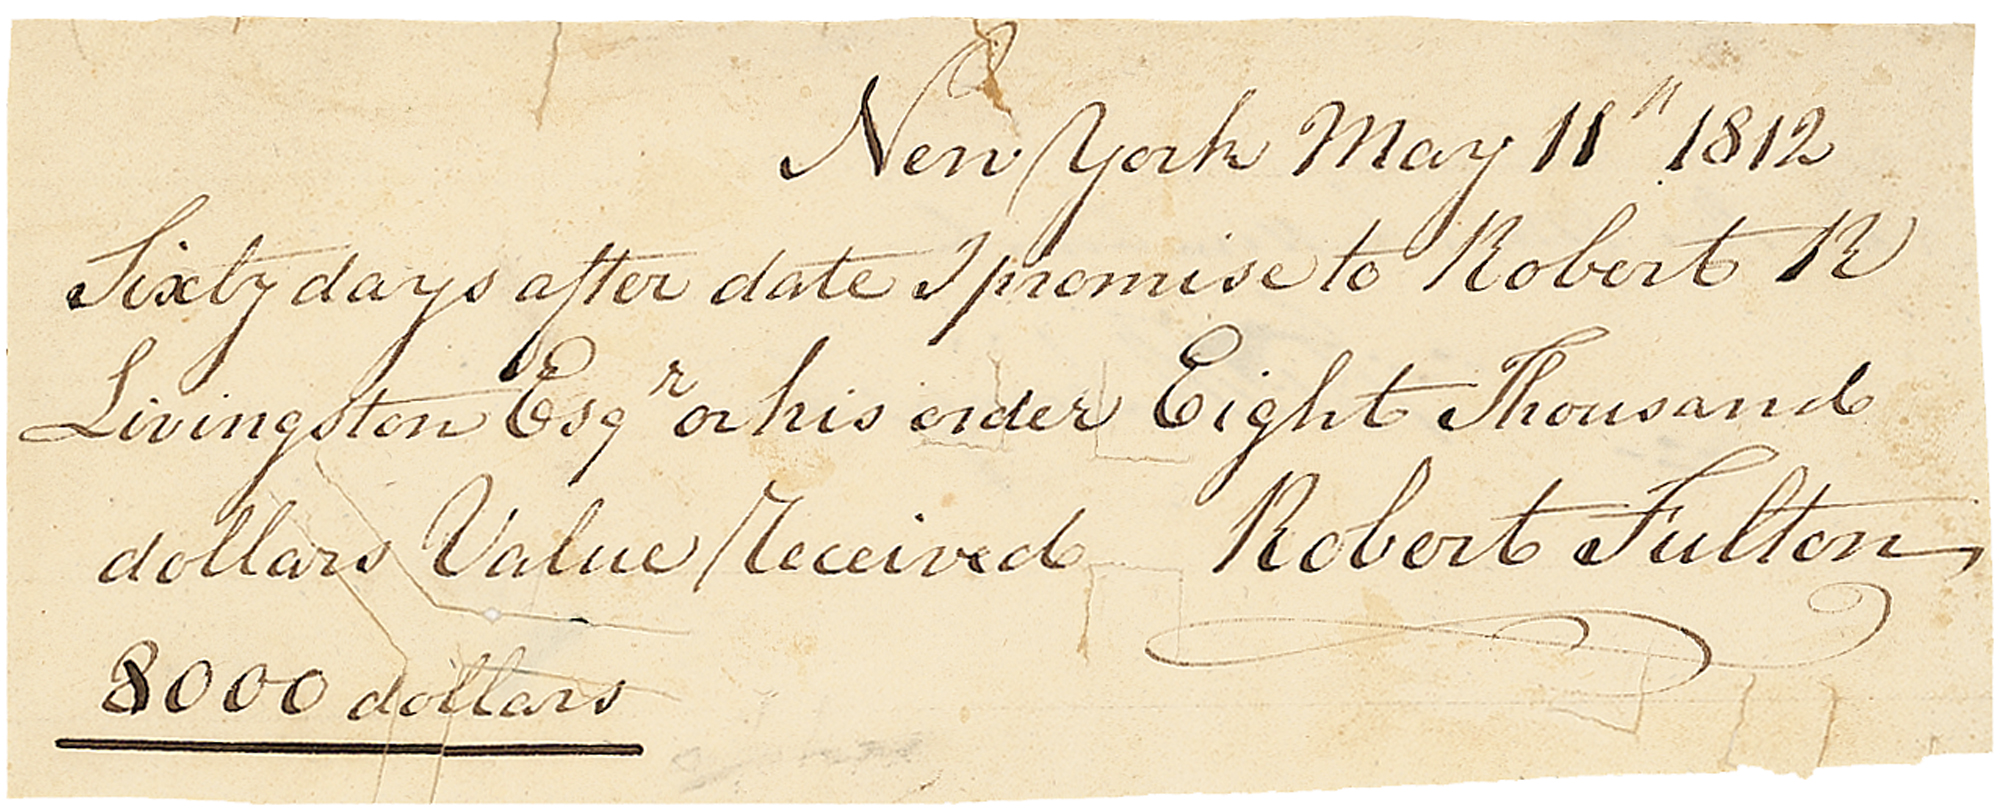 New York May 11th 1812
Sixty days after date I promise to Robert R
Livingston Esqr or his order Eight Thousand
dollars Value Received Robert Fulton
8000 dollars